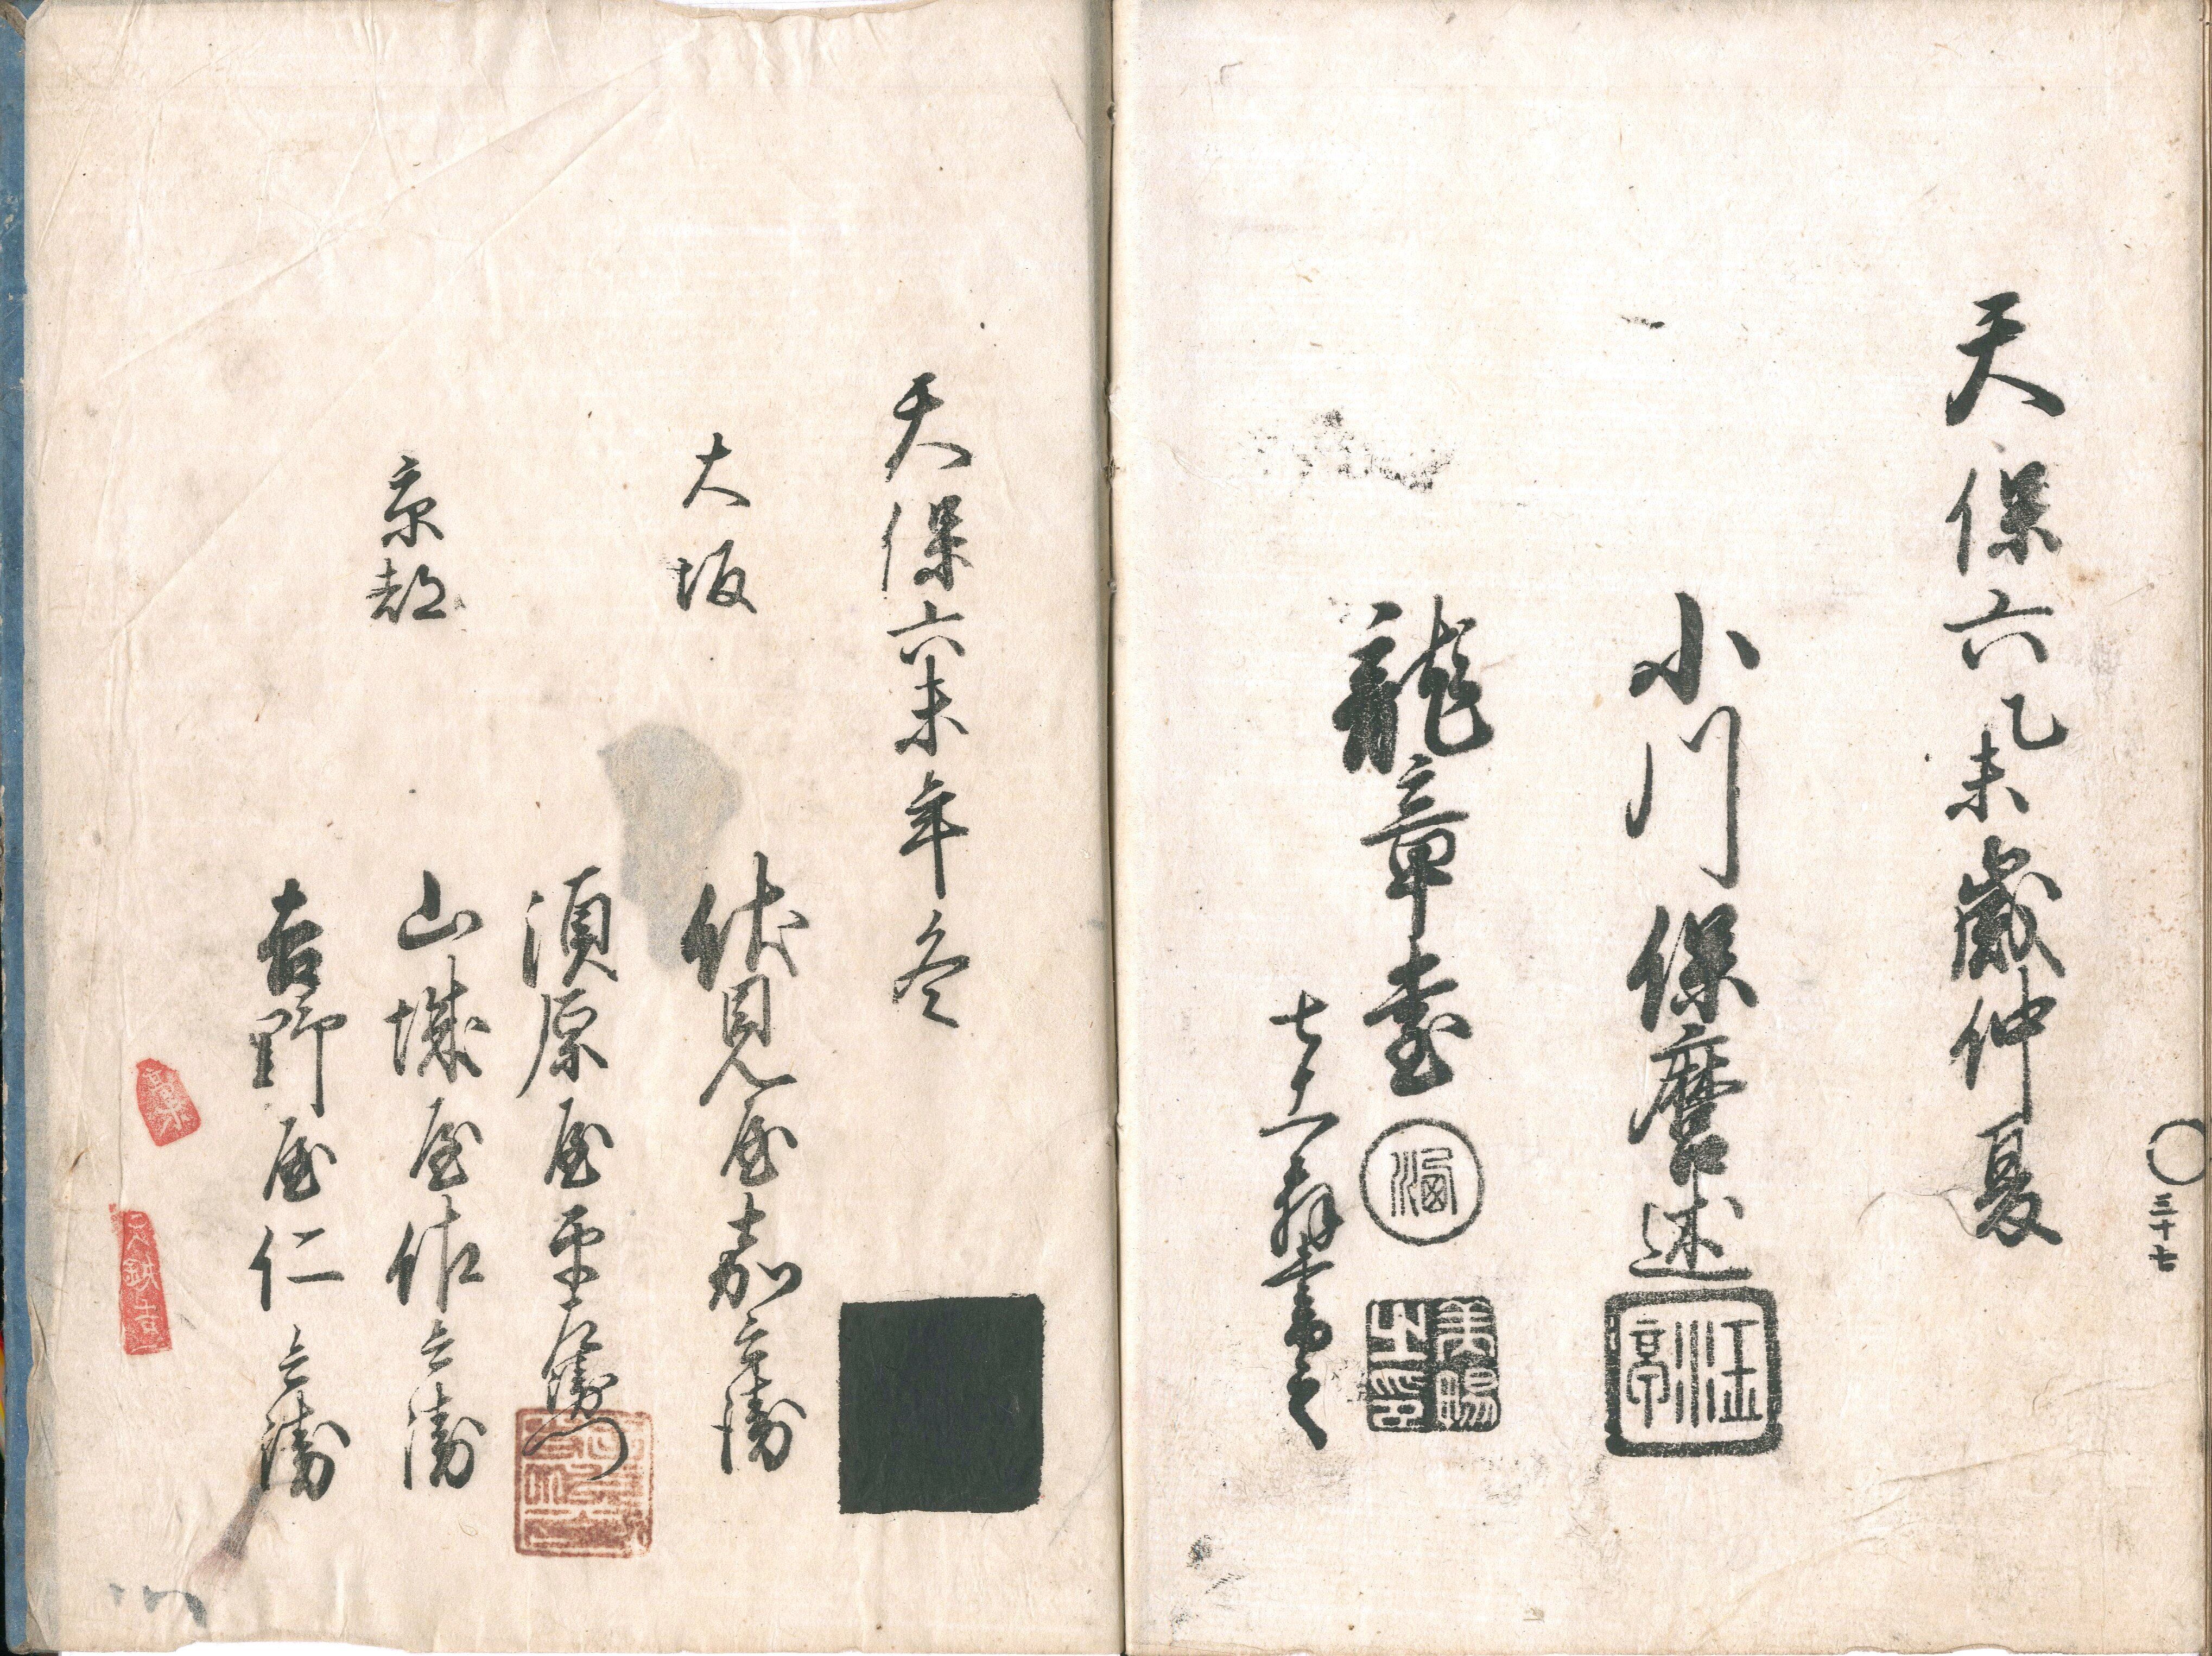 天保六乙未歳仲夏
小川保麿述
龍章堂
三十七
天保六未年冬
大坂
伏見屋嘉兵衛
須原屋平左衛門
京都
山城屋佐兵衛
吉野屋仁兵衛